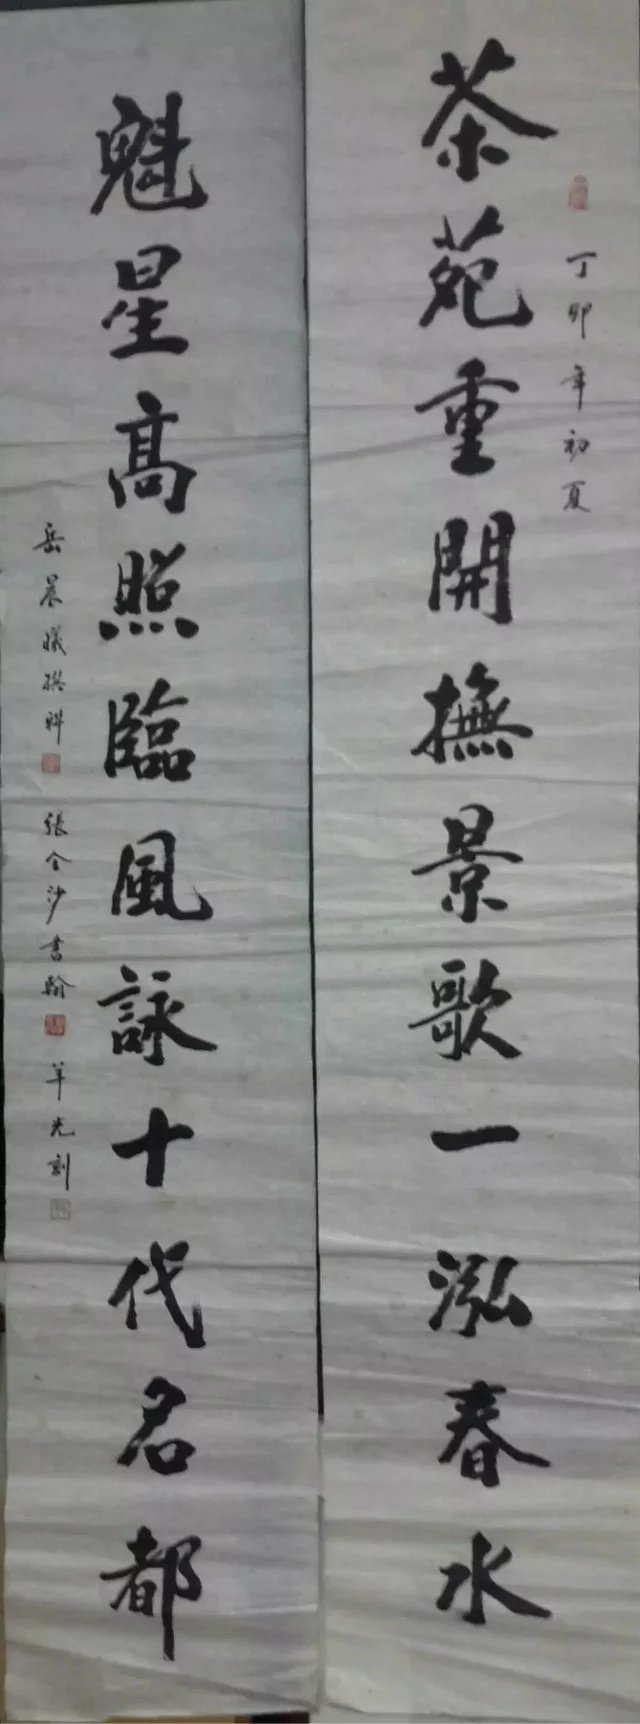 丁卯年初夏
茶苑重開撫景歌一泓春水
魁星高照臨風詠十代名都
岳晨曦撰联 張今沙書 羊光刻